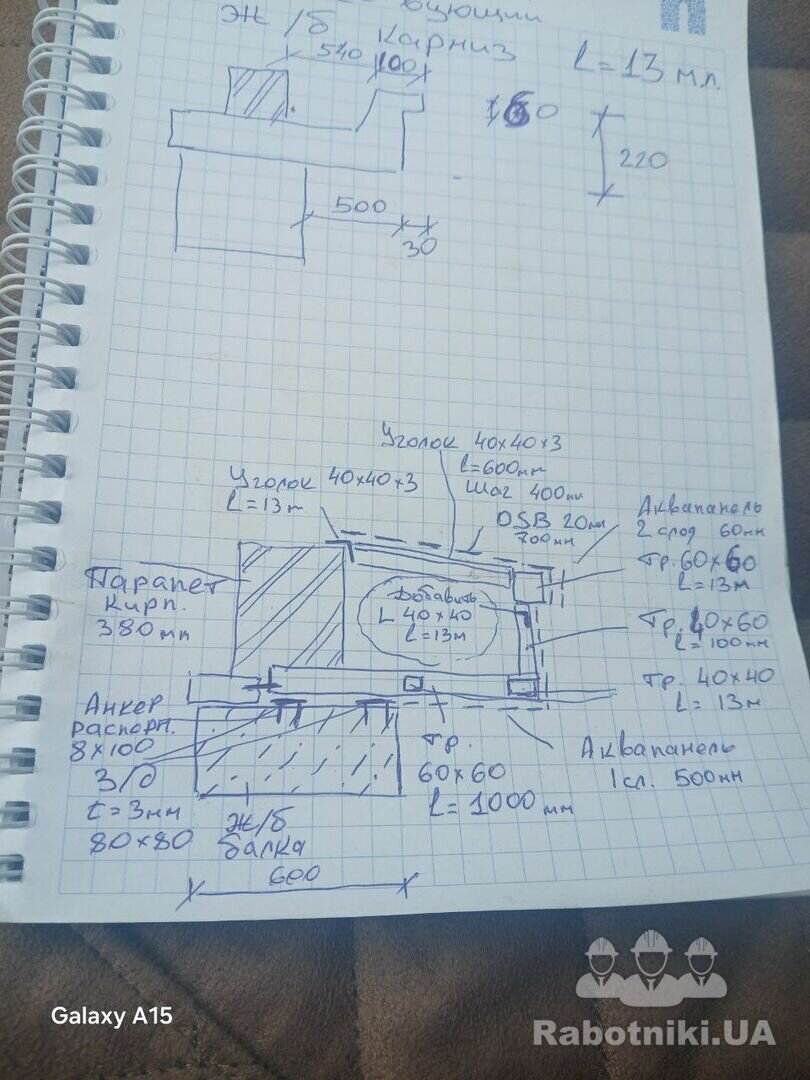 Ж/б карниз
L=13 м.п.
540
100
160
220
500
30
Уголок 40x40x3
l=600мм
Шаг 400мм
Уголок 40x40x3
L=13m
OSB 20мм
700мм
Аквапанель
2 слоя 60мм
Тр. 60x60
L=13м
Парапет
кирп.
380мм
Добавить
L 40x40
l=13м
Тр. 40x60
L=100мм
Тр. 40x40
L=13м
Анкер
распорн.
8x100
З/д
t=3мм
80x80
Ж/б
балка
600
Тр.
60x60
l=1000мм
Аквапанель
1сл. 500мм
Galaxy A15
Rabotniki.UA